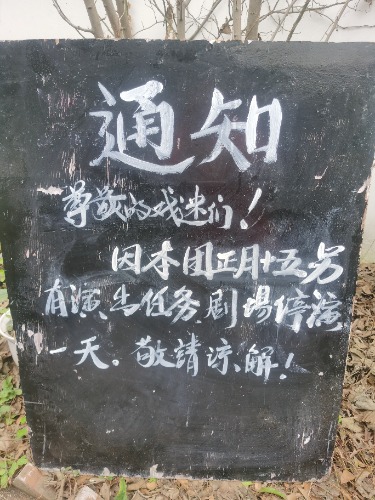 通知
尊敬的戏迷们！
因本团正月十五另
有演出任务，剧場停演
一天。敬請谅解！